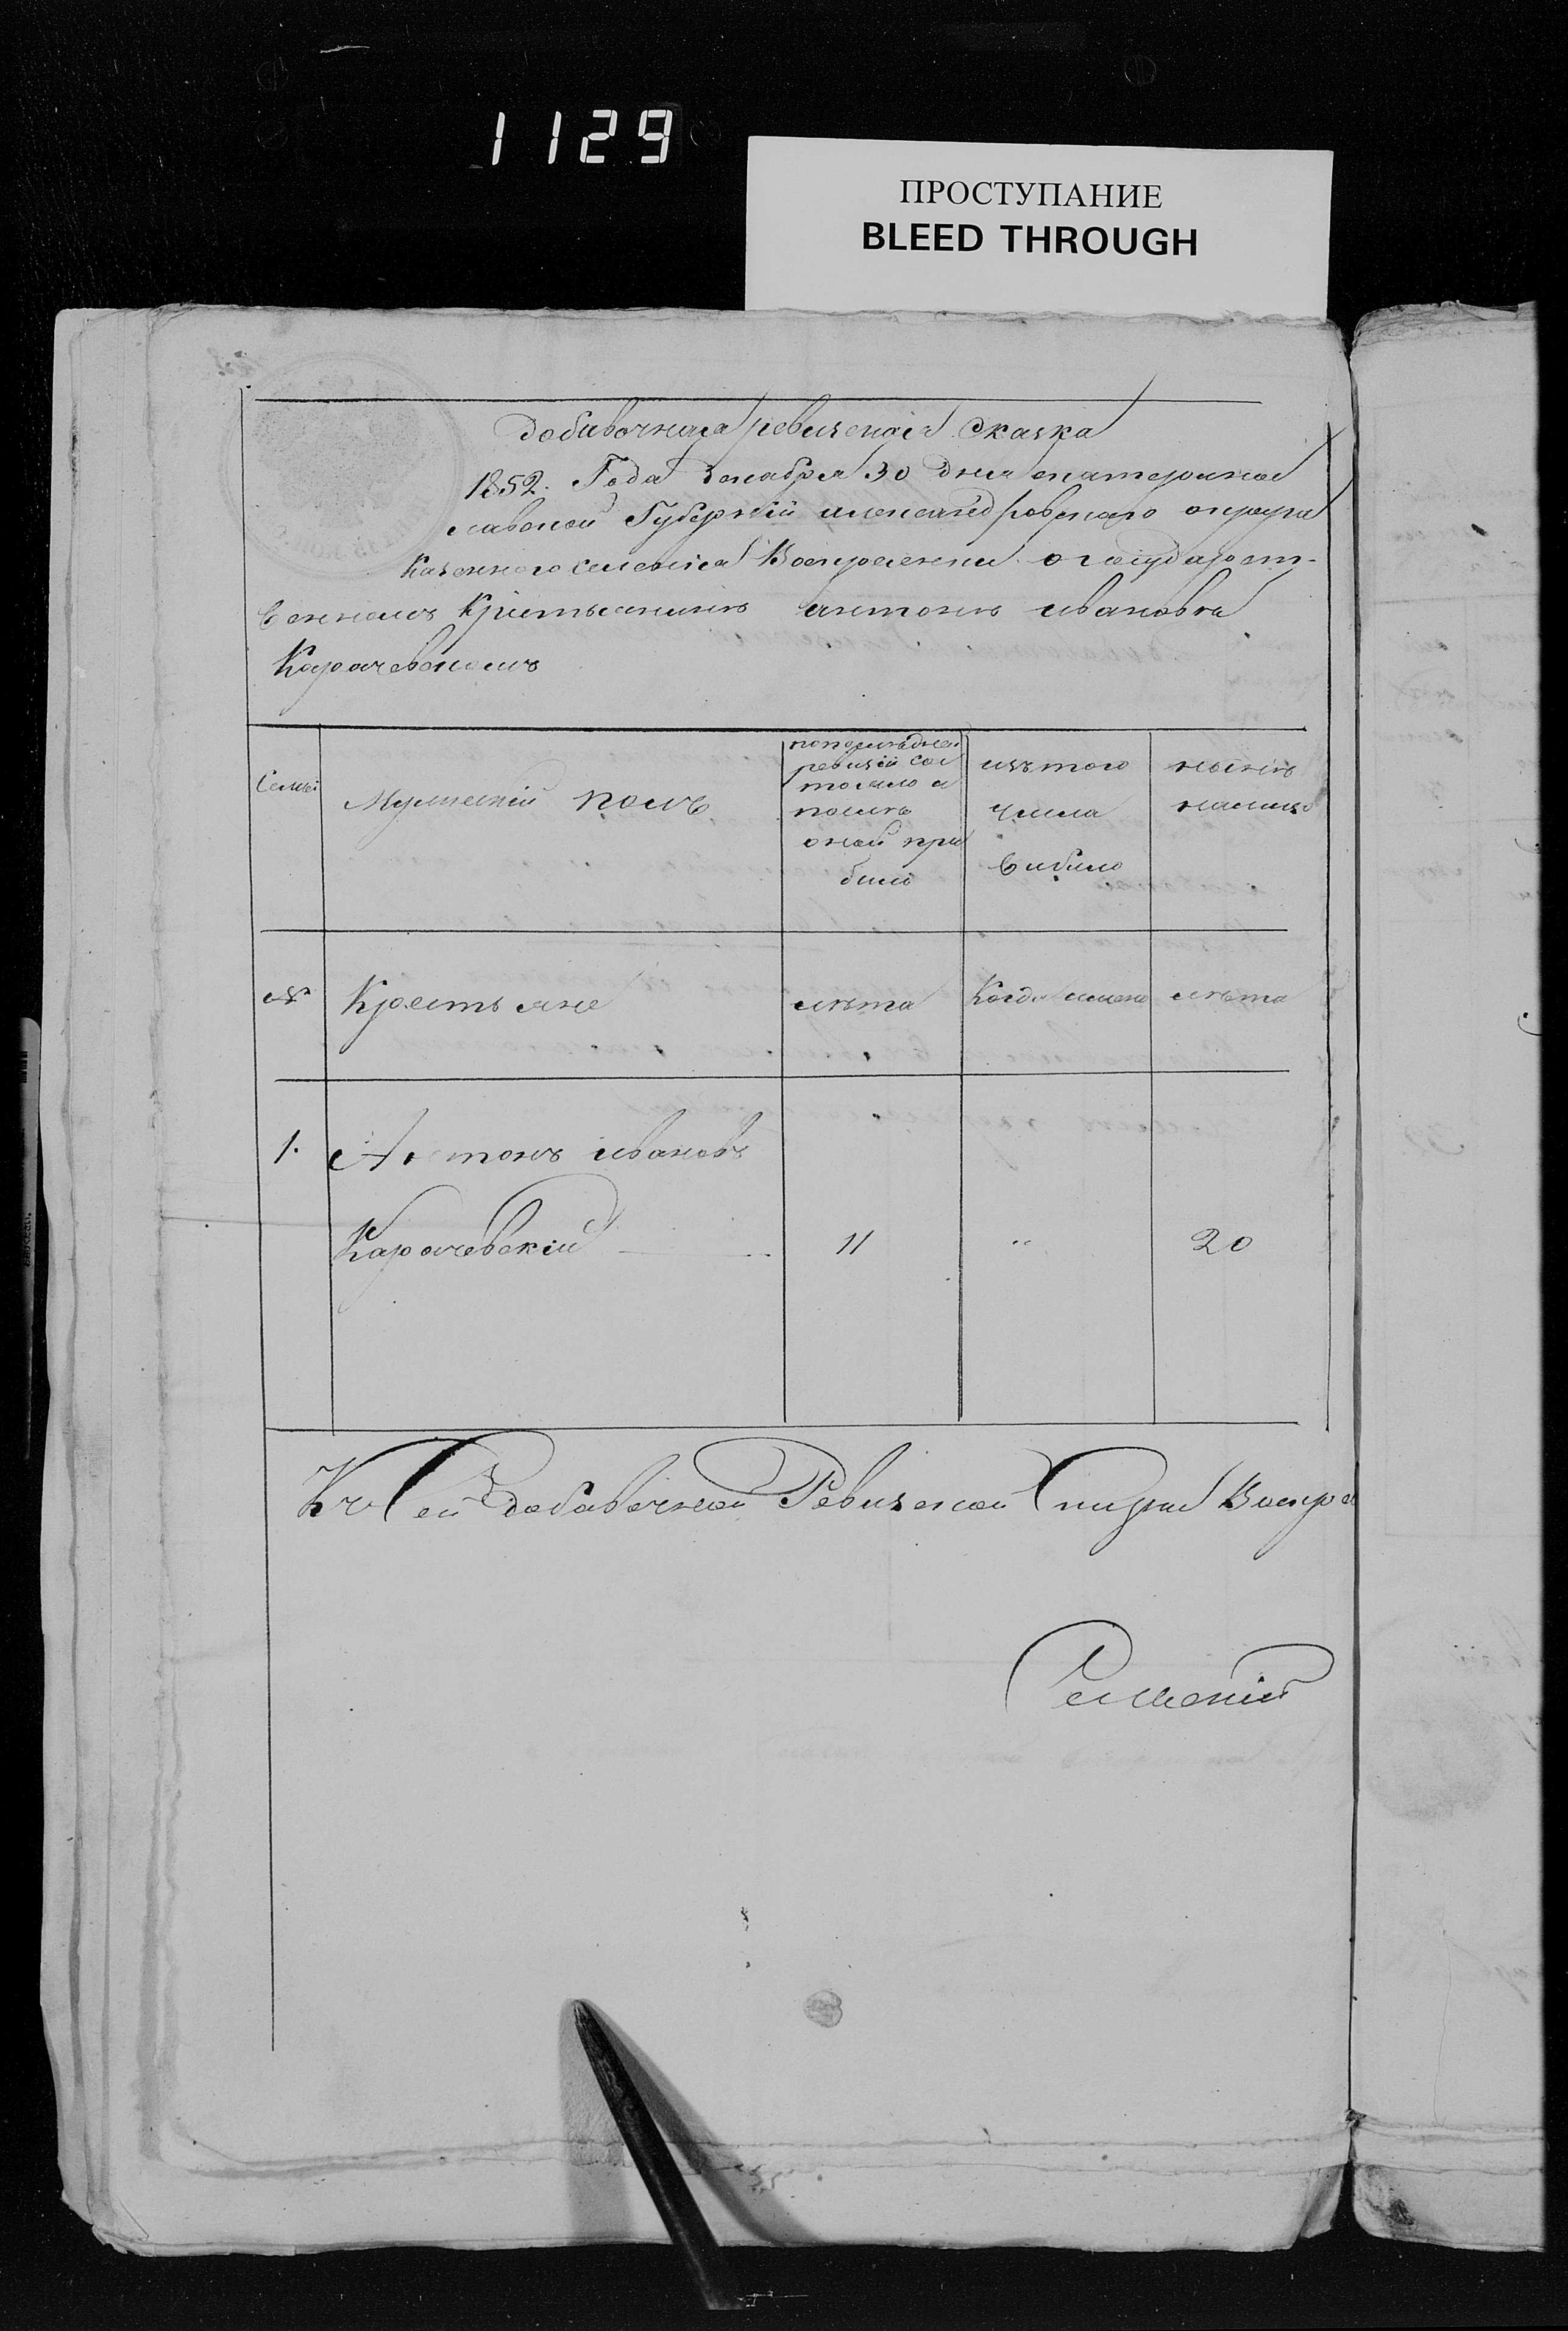 1129
ПРОСТУПАНИЕ
BLEED THROUGH
Добавочная ревизская Сказка
1852. Года Декабря 30 дня екатеринос
лавской Губерніи александровскаго округа
Казеннаго селенія Воскресенки о государст-
венномъ Крестьянинѣ антонѣ ивановѣ
Карачевскомъ
Семьи
Мужескій полъ
попослѣдней
ревизіи сос
тояло и
послѣ
оной при
было
изъ того
числа
выбыло
нынѣ
налицо
№
Крестьяне
лѣта
Когда именно
лѣта
1.
Антонъ ивановъ
Карачевскій
11
"
20
Къ Сей добавочной Ревизской Воскре
Сельскій